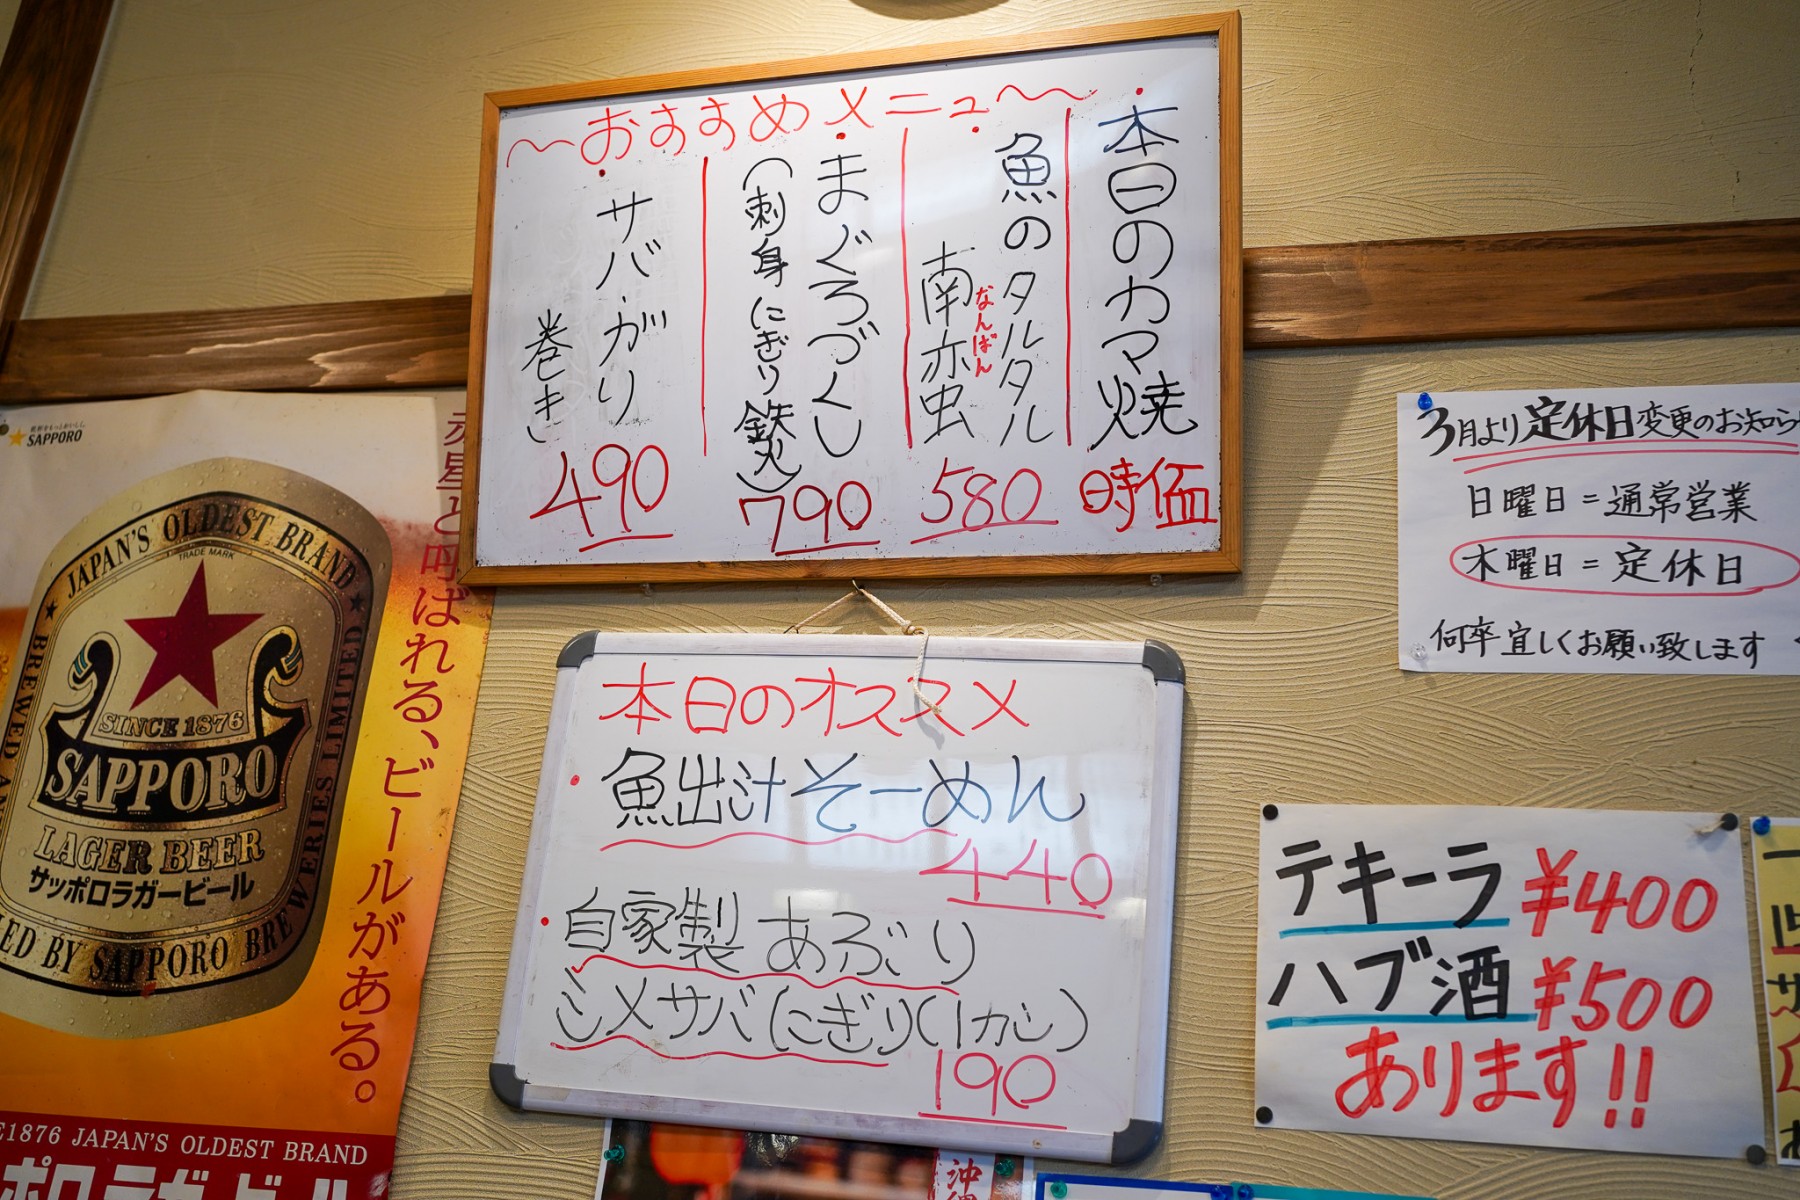 ~おすすめメニュ~
・本日のカマ焼
時価
・魚のタルタル
南亦虫
なんばん
580
・まぐろづくし
(刺身にぎり鉄火)
790
・サバ・ガリ
巻き
490
本日のオススメ
・魚出汁そーめん
440
・自家製あぶり
シメサバにぎり(1カン)
190
3月より定休日変更のお知らせ
日曜日=通常営業
木曜日=定休日
何卒宜しくお願い致します
テキーラ ¥400
ハブ酒 ¥500
あります!!
SAPPORO
赤星と呼ばれる、ビールがある。
JAPAN'S OLDEST BRAND
TRADE MARK
BREWED AN
SINCE 1876
SAPPORO
LAGER BEER
サッポロラガービール
ED BY SAPPORO BREWERIES LIMITED
E1876 JAPAN'S OLDEST BRAND
ッポロラガービール
沖縄